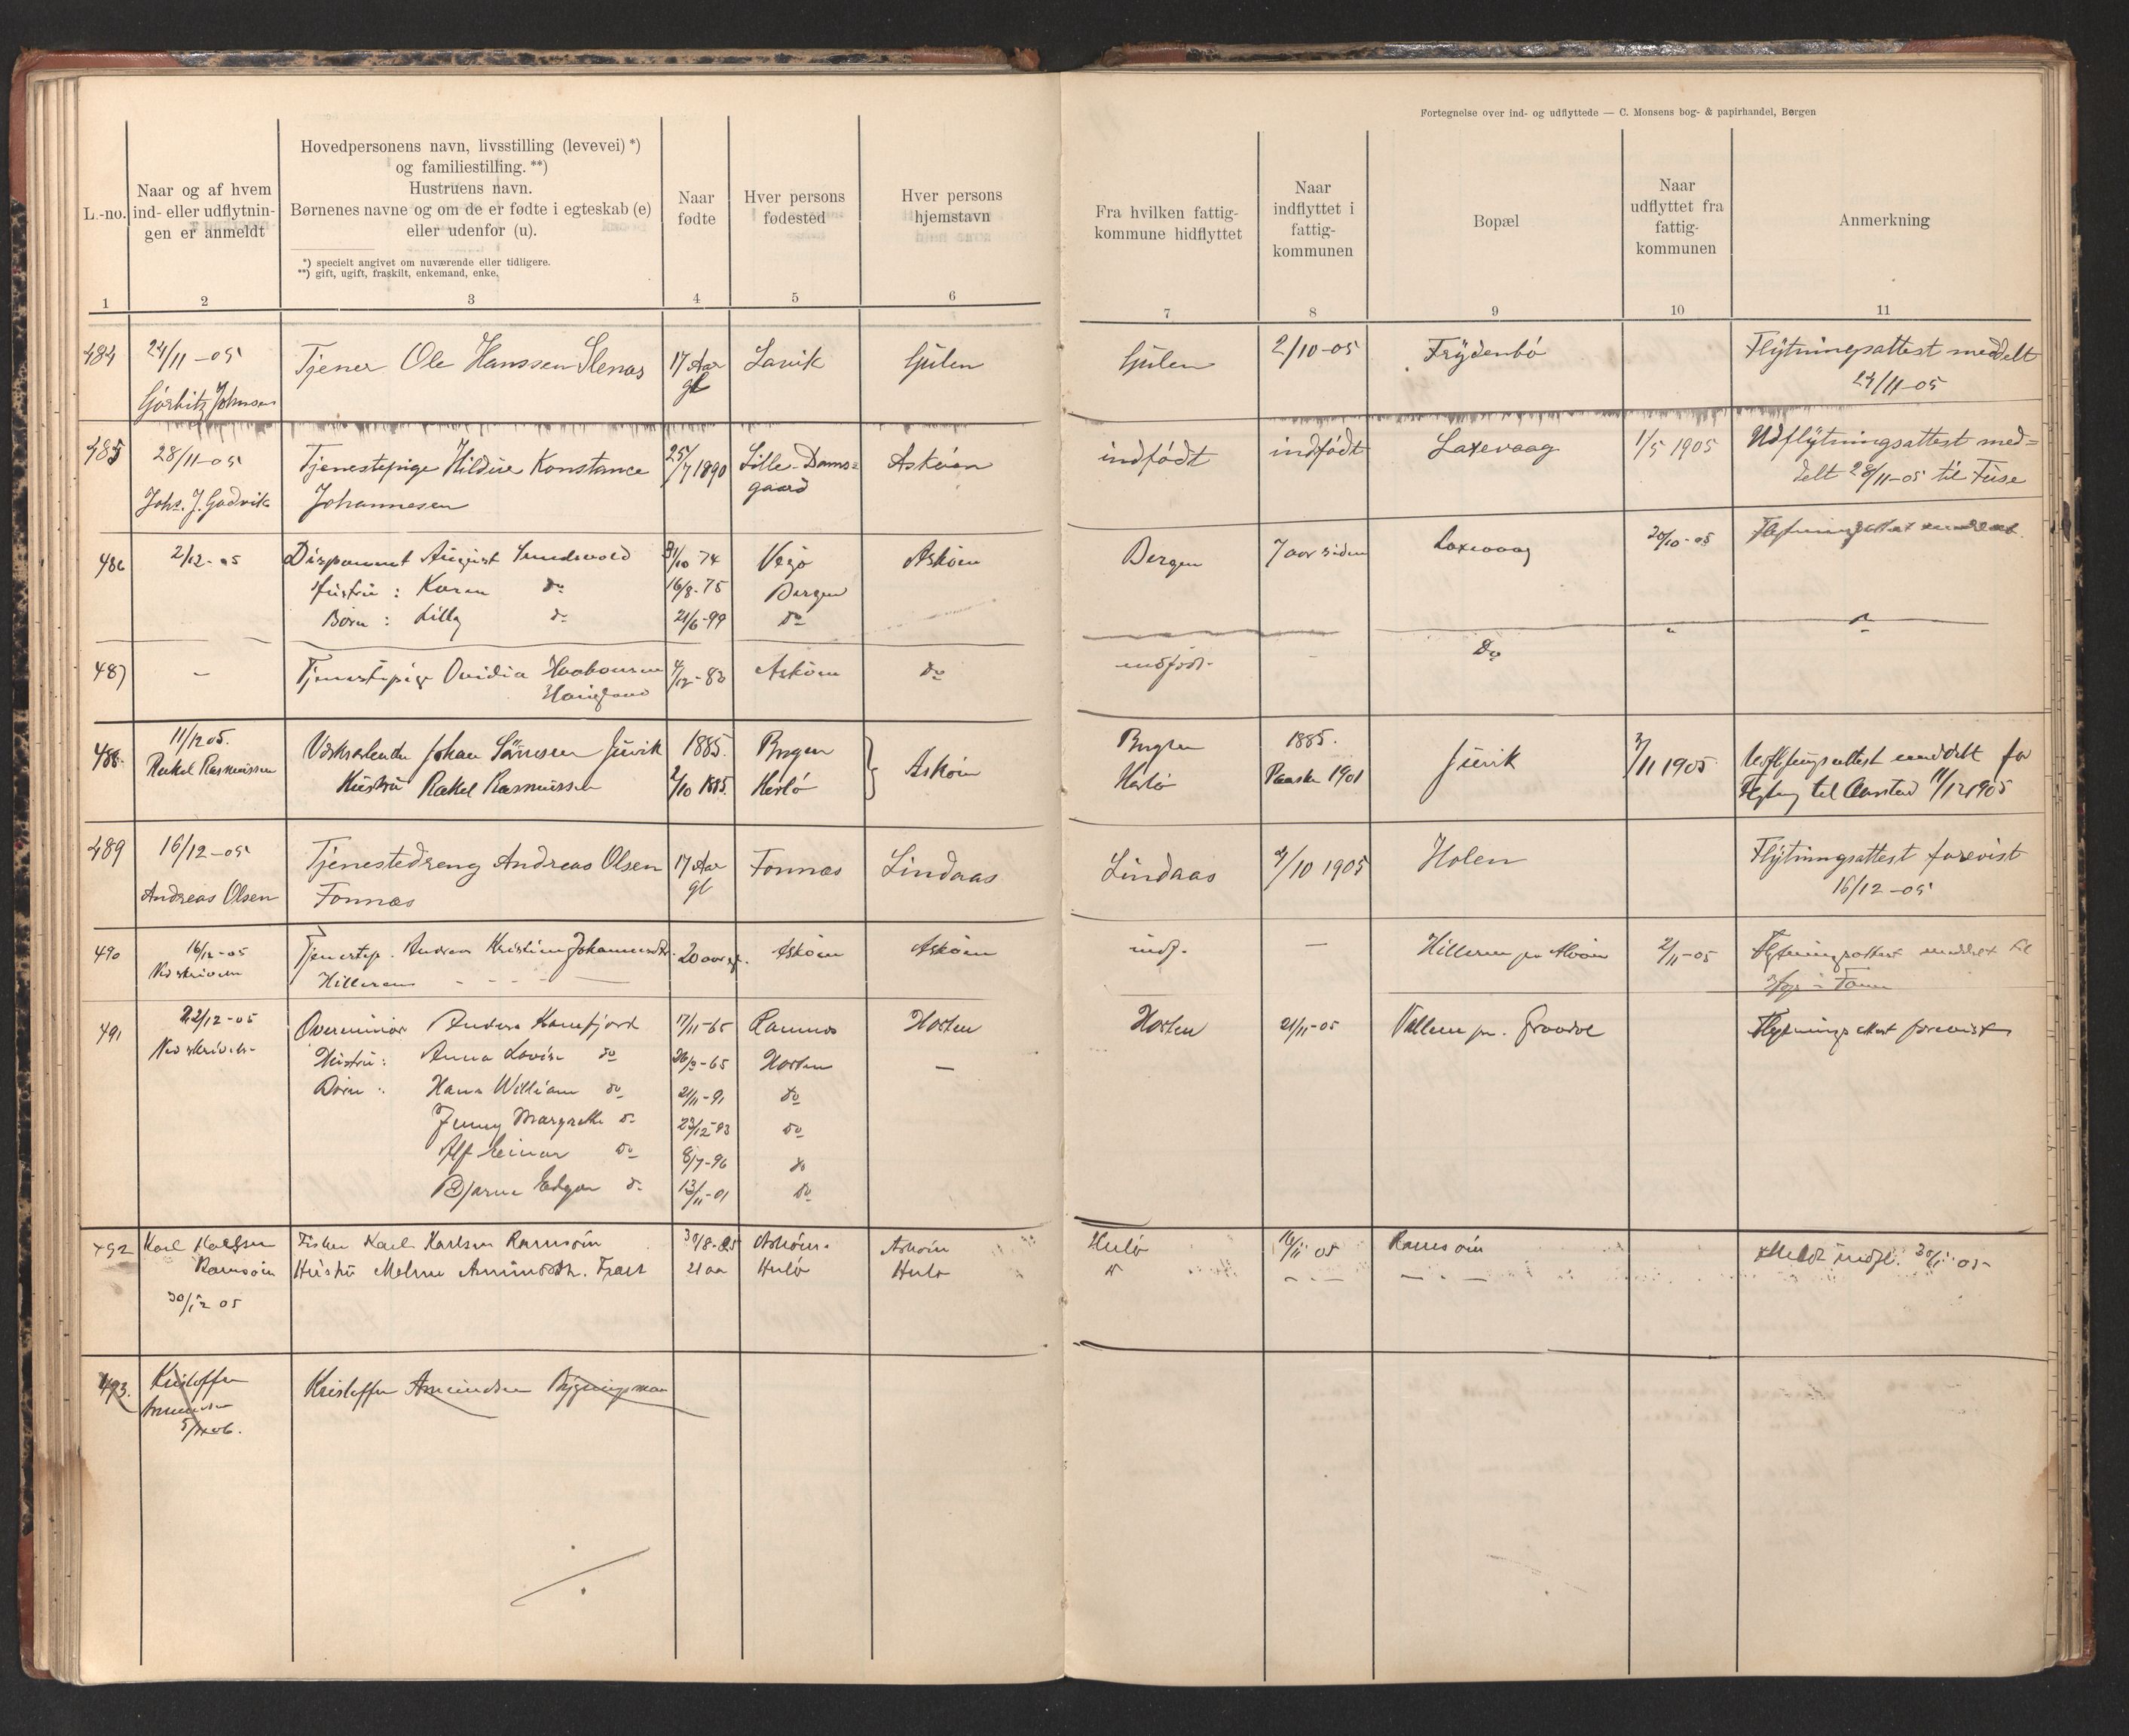 Fortegnelse over ind- og udflyttede — C. Monsens bog- & papirhandel, Bergen
L.-no.
Naar og af hvem
ind- eller udflytnin-
gen er anmeldt
Hovedpersonens navn, livsstilling (levevei) *)
og familiestilling. **)
Hustruens navn.
Børnenes navne og om de er fødte i egteskab (e)
eller udenfor (u).
*) specielt angivet om nuværende eller tidligere.
**) gift, ugift, fraskilt, enkemand, enke.
Naar
fødte
Hver persons
fødested
Hver persons
hjemstavn
Fra hvilken fattig-
kommune hidflyttet
Naar
indflyttet i
fattig-
kommunen
Bopæl
Naar
udflyttet fra
fattig-
kommunen
Anmerkning
1 2 3 4 5 6 7 8 9 10 11
484 24/11 -05 Tjener Ole Hanssen Slenas 17 Aar Lavik Gulen Gulen 2/10-05 Frydenbø Flytningsattest meddelt
Johnsen gl 24/11-05
485 28/11-05 Tjenestepige Hildur Konstance 25/7 1890 Lille-Dams= Askøen indfødt indfødt Laxevaag 1/5 1905 Udflytningsattest med=
Johs. J. Gadvik Johannesen gaard delt 28/11-05 til Fuse
486 2/12-05 Disponent August Sundsvold 31/10 74 Vegø Askøen Bergen 7 aar siden Laxevaag 20/10-05 Flytningsattest
Hustru : Karen do 16/8-75 Bergen
Børn : Lilly do 21/6-99 do
487 – Tjenestepige Ovidia 4/12-83 Askøen do indfødt - Do
488 11/12 05. Johan Juvik 1885 Bergen Askøen Bergen 1885. Juvik 3/11 1905 Udflytningsattest meddelt for
Rakel Rasmussen Hustru Rakel Rasmussen 2/10 1885. Herlø Herlø Paaske 1901 til Aarstad 11/12 1905
489 16/12-05 Tjenestedreng Andreas Olsen 17 Aar Fonnæs Lindaas Lindaas 4/10 1905 Holen Flytningsattest forevist
Andreas Olsen Fonnæs gl 16/12-05
490 16/12-05 Tjenestep. Andrea Kristine 20 aar gl. Askøen Askøen indf. — Hilleren pr Alvøen 2/11-05 Flytningsattest meddelt til
Hilleren
491 22/12-05 Overminør Anders 17/11-65 Horten Horten 21/11-05 pr. Gravdal Flytningsattest forevist
Hustru: Anna Lovise do 26/3-65 Horten —
Børn : Hans William do 21/11-91 do
Jenny Margrethe do 23/12-93 do
Alf Einar do 8/7-96 do
Bjarne Edgar do 13/11-01 do
492 Karl Karlsen Fisker Karl Karlsen Ramsøen 30/8-85 Askøen Askøen Herlø 16/11 05 Ramsøen Meldt indfl. 05
Ramsøen Hustru 21 aa Herlø Herlø
30/12 05
493. Kristoffer Kristoffer Amundsen Bygningsmand
Amundsen